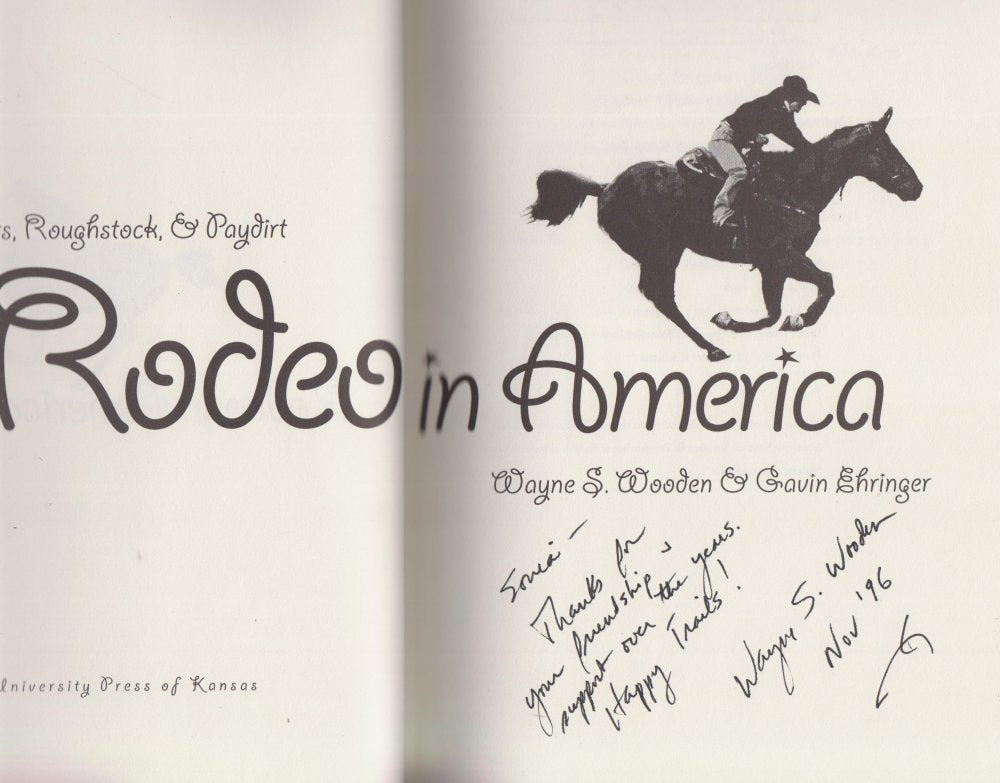 s, Roughstock, & Paydirt
Rodeo in America
Wayne S. Wooden & Gavin Ehringer
Sonia –
Thanks for
your friendship &
support over the years.
Happy Trails!
Wayne S. Wooden
Nov '96
University Press of Kansas